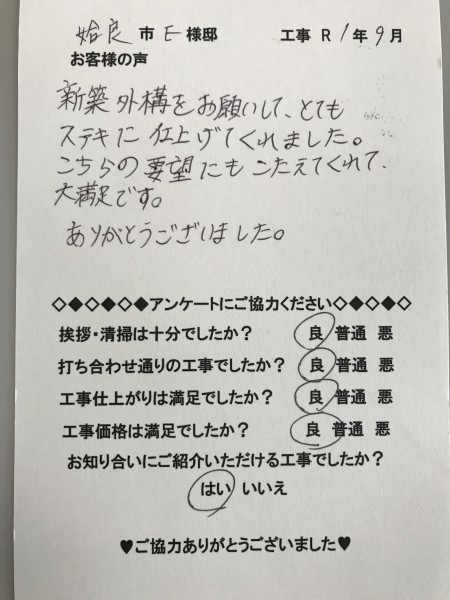 姶良市E様邸 工事 R1年9月
お客様の声
新築外構をお願いして、とても
ステキに仕上げてくれました。
こちらの要望にもこたえてくれて、
大満足です。
ありがとうございました。
◇◆◇◆◇◆アンケートにご協力ください◇◆◇◆◇
挨拶・清掃は十分でしたか? 良 普通 悪
打ち合わせ通りの工事でしたか? 良 普通 悪
工事仕上がりは満足でしたか? 良 普通 悪
工事価格は満足でしたか? 良 普通 悪
お知り合いにご紹介いただける工事でしたか?
はい いいえ
♥ご協力ありがとうございました♥